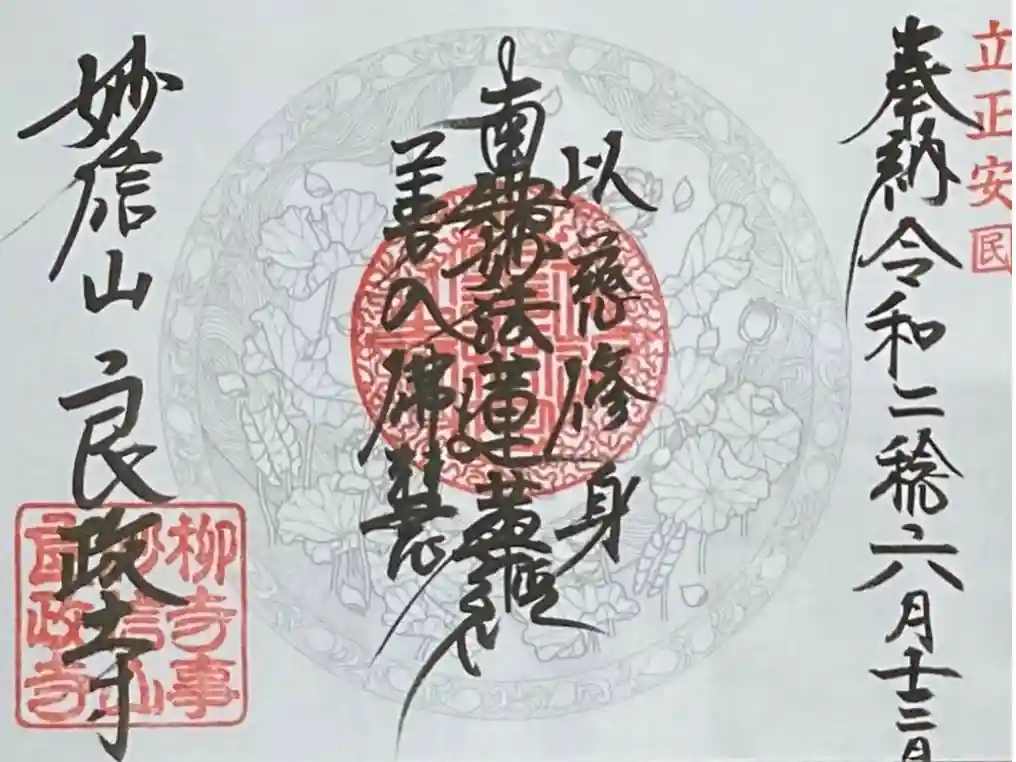 立正安民
奉納 令和二稔六月十三日
以慈修身
南無妙法蓮華経
善入佛慧
妙信山 良政寺
柳寺事
妙信山
良政寺